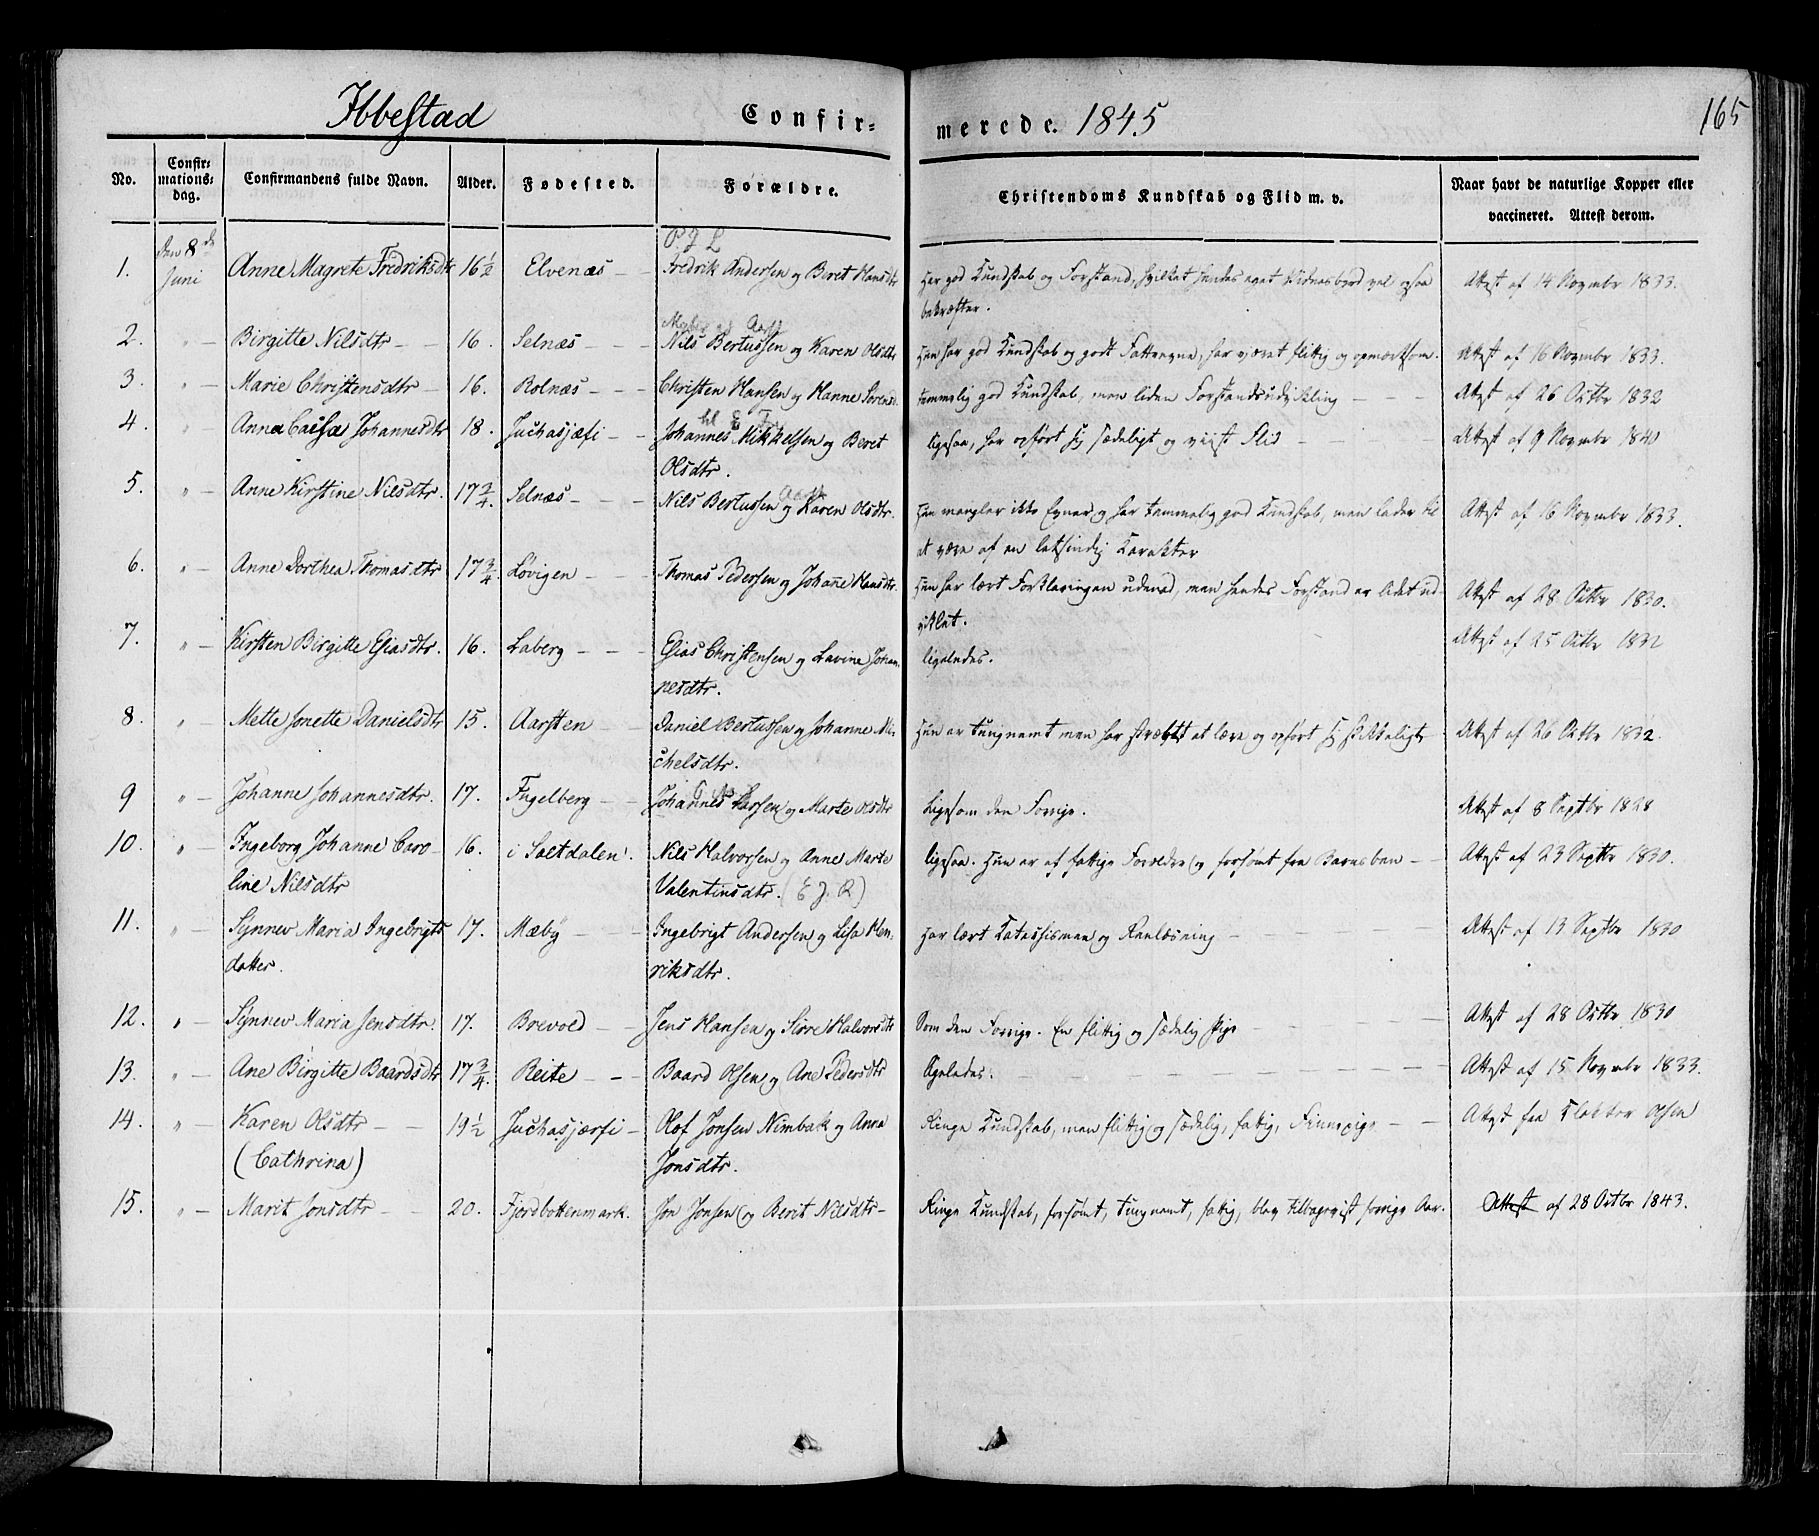 Ibbestad Confir- merede. 1845 165
No. Confir- mations- dag. Confirmandens fulde Navn. Alder. Fødested. Forældre. Christendoms Kundskab og Flid m. v. Naar havt de naturlige Kopper eller vaccineret. Attest derom.
P. J L
1. den 8de Juni Anne Magrete Fredriksdtr 16½ Elvenæs - - Fredrik Andersen og Beret Hansdtr Har god Kundskab og Forstand, hvilket hendes eget Vidnesbyrd vel ogsaa Attest af 14 Novmbr 1833.
bekræfter.
2. " - Birgitte Nilsdtr - - 16. Selnæs - - - Nils Bertussen og Karen Olsdtr Hun har god Kundskab og godt Fattevegne, har været flittig og opmærksom. Attest af 16 Novmbr 1833.
3. " - Marie Christensdtr - 16. Rolnæs - - - Christen Hansen og Hanne Sørensd. temmelig god Kundskab, men liden Forstandsudvikling - - - Attest af 26 Octbr 1832
4. " - Anna Caisa Johannesdtr 18. Juchasjæfi - - Johannes Mikkelsen og Beret ligesaa, har opført sig sædeligt og viist Flid - - - Attest af 9 Novmbr 1840
Olsdtr.
5. " - Anne Kirstine Nilsdtr. 17¾ Selnæs - - - Nils Bertussen og Karen Olsdtr. Hun mangler ikke Evner og har temmelig god Kundskab, men lader til Attest af 16 Novmbr 1833.
at være af en letsindig Karakter
6. " - Anne Dorthea Thomasdtr 17¾ Løvigen - - - Thomas Pedersen og Johane Hansdtr. Hun har lært Forklaringen udenad, men hendes Forstand er lidet ud- Attest af 28 Octbr 1830.
viklet.
7. " - Kirsten Birgitte Esiasdtr. 16. Laberg - - - Esias Christensen og Lavine Johan- ligeledes. Attest af 25 Octbr 1832
nesdtr.
8. " - Mette Jonette Danielsdtr 15. Aarsten - - Daniel Bertussen og Johanne Mi- Hun er tungnemt men har stræbt at lære og opført sig skikkeligt - Attest af 26 Octbr 1832.
chelsdtr.
9 " - Johanne Johannesdtr. 17. Fugelberg - - Johannes Larsen og Marte Olsdtr Ligesom den Forrige. Attest af 8 Septbr 1828
10. " - Ingeborg Johanne Caro- 16. i Saltdalen. Nils Halvorsen og Anne Marte ligesaa. Hun er af fattige Forældre og forsømt fra Barnsben - - Attest af 23 Septbr 1830.
line Nilsdtr Valentinsdtr. (E J. R)
11. " - Synnev Maria Ingebrigts 17. Mæby - - - Ingebrigt Andersen og Lisa Hen- Har lært Catechismen og Reenlæsning - - - Attest af 13 Septbr 1830
datter. riksdtr.
12. " - Synnev Maria Jensdtr. 17. Brevold - - Jens Hansen og Sirre Halvorsdtr Som den Forrige. En flittig og sædelig Pige - - - Attest af 28 Octbr 1830
13. " - Ane Birgitte Baardsdtr 17¾. Reite - - Baard Olsen og Ane Pedersdtr ligeledes. - - - Attest af 15 Novmbr 1833.
14. " - Karen Olsdtr - - 19½ Juchasjærfi - Olof Jonsen Nimbak og Anna Ringe Kundskab, men flittig og sædelig, fattig, Finnepige - - Attest fra Klokker Olsen
(Cathrina) Jonsdtr.
15. " - Marit Jonsdtr - - 20. Fjordbottenmark. Jon Jonsen og Berit Nilsdtr - Ringe Kundskab, forsømt, tungnemt, fattig, blev tilbageviist forrige Aar. Attest af 28 Octbr 1843.